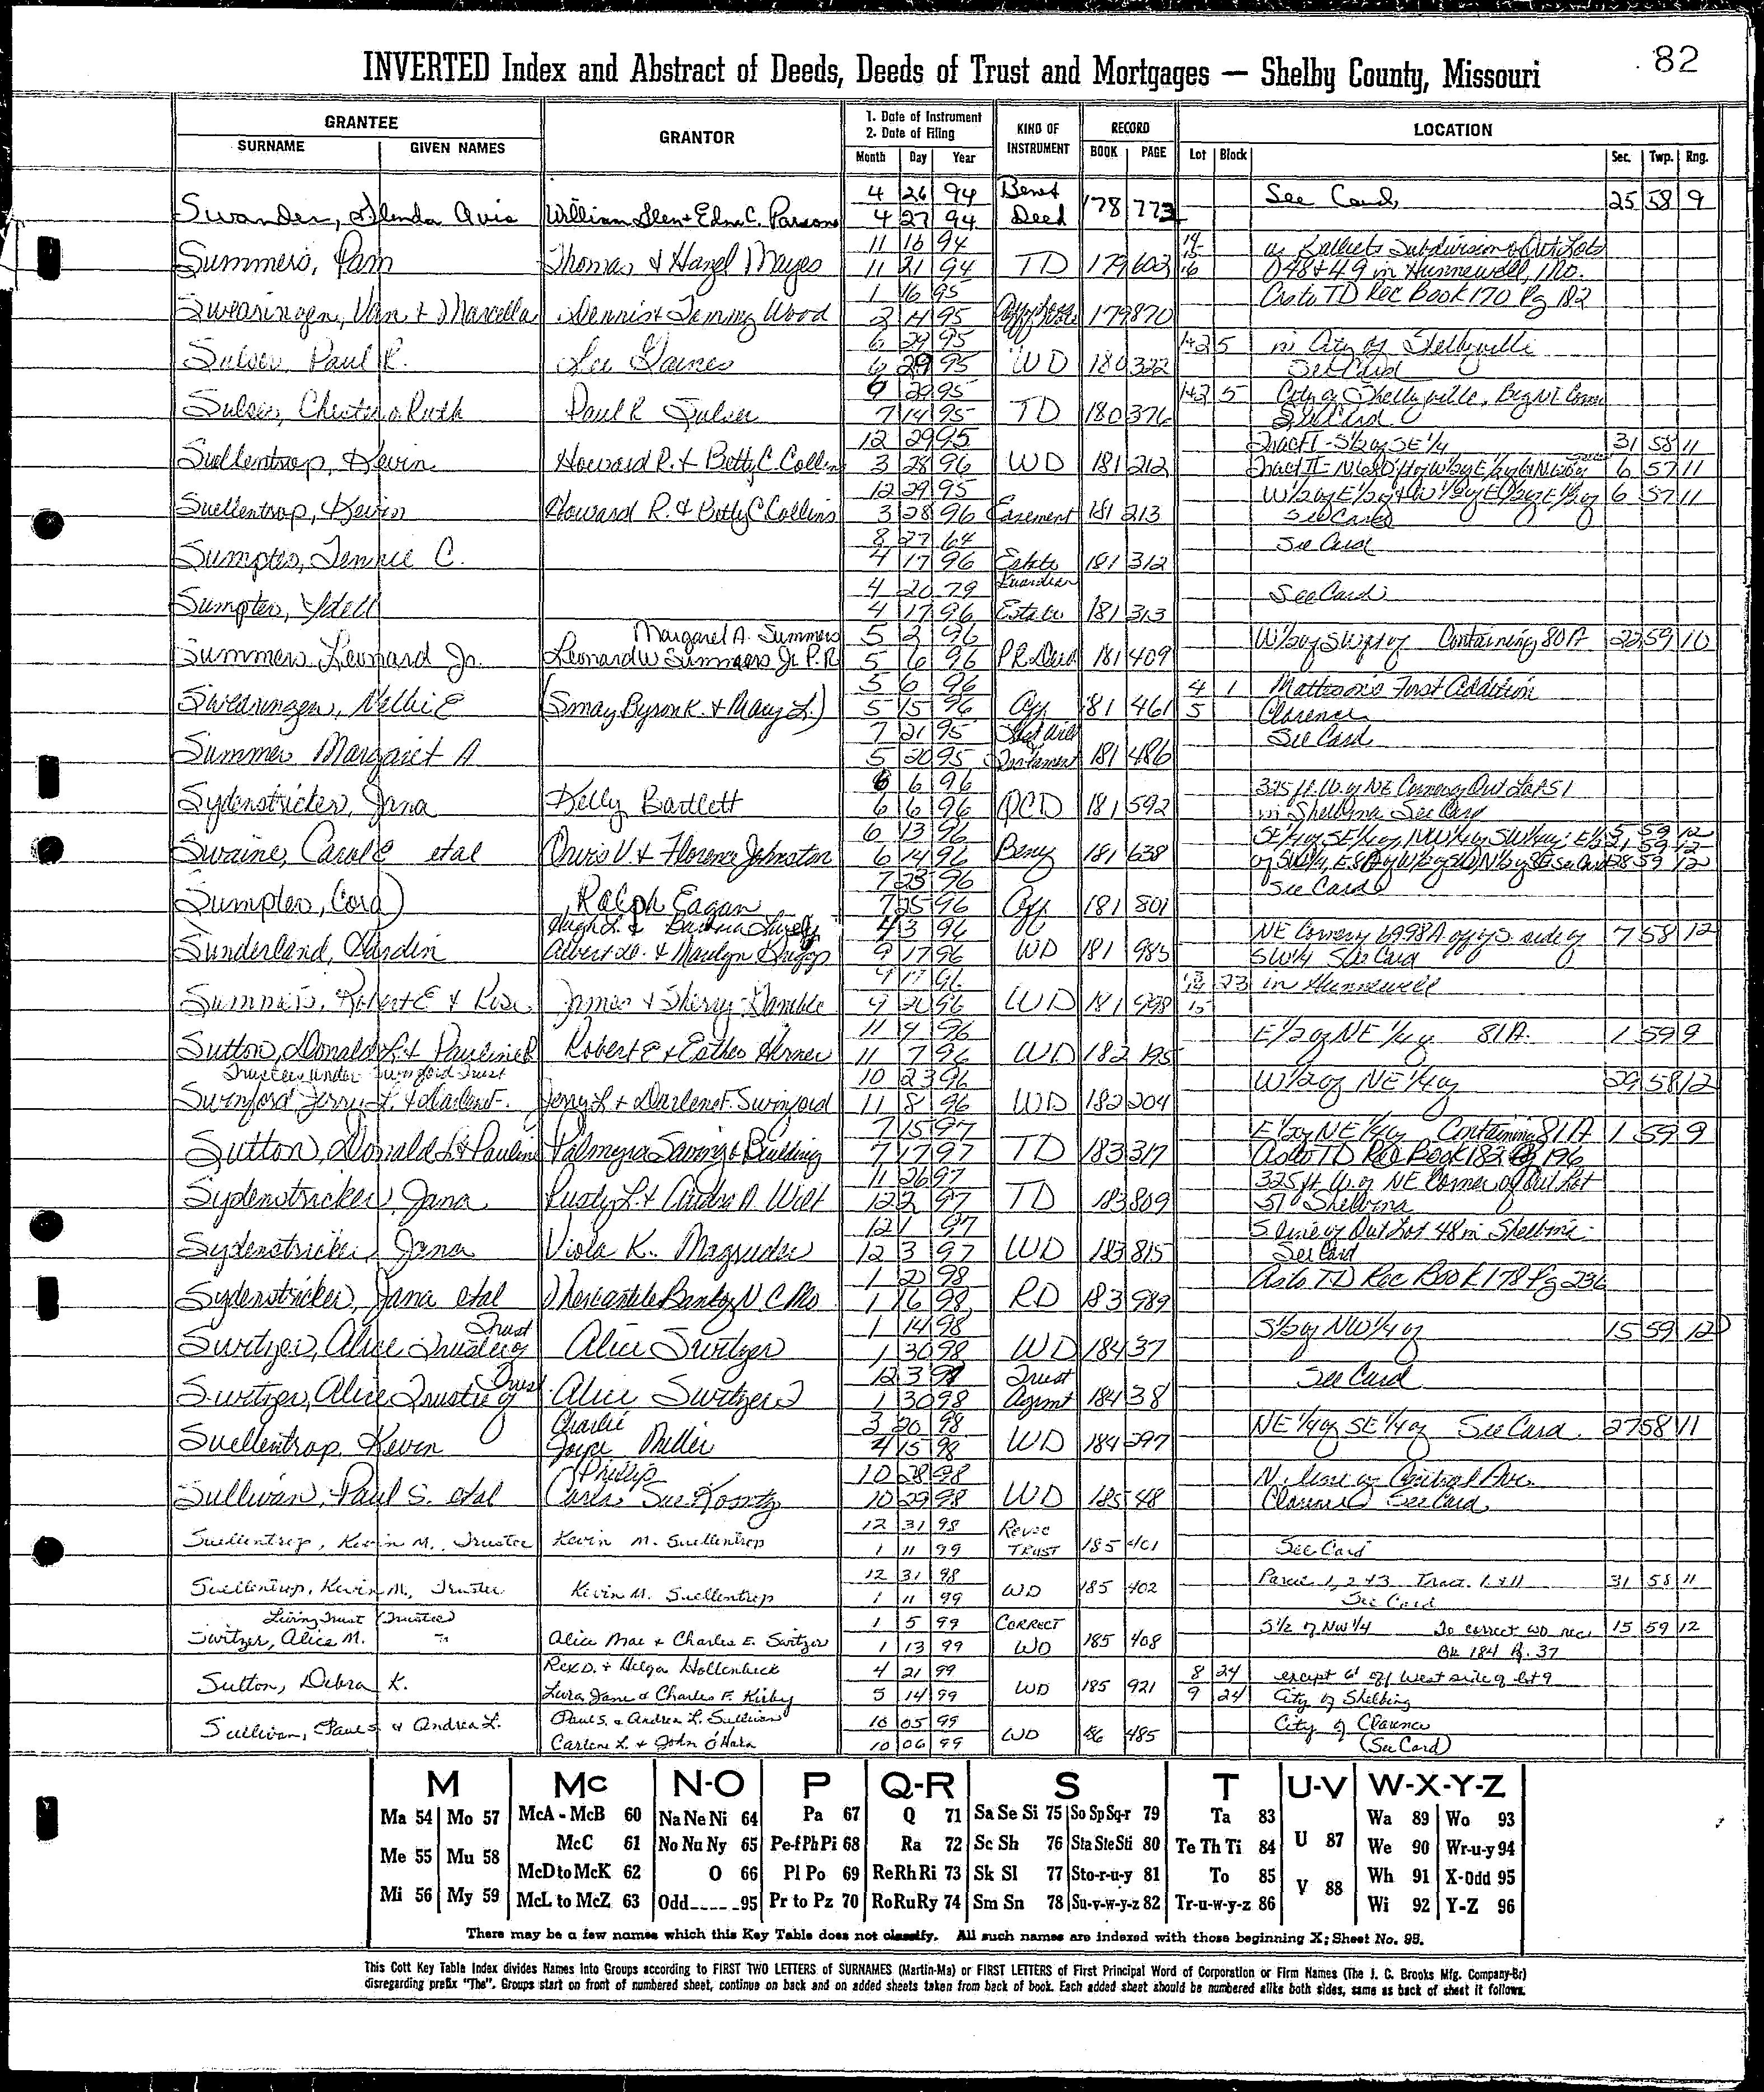 82
INVERTED Index and Abstract of Deeds, Deeds of Trust and Mortgages — Shelby County, Missouri
GRANTEE
SURNAME GIVEN NAMES
GRANTOR
1. Date of Instrument
2. Date of Filing
Month Day Year
KIND OF INSTRUMENT
RECORD
BOOK PAGE
LOCATION
Lot Block Sec. Twp. Rng.
4 26 94 Benef See Card 25 58 9
Swander, Glenda Avis William Glen & Edna C. Parsons 4 27 94 Deed 178 773
11 16 94 14 Subdivision of Out Lots
Summers, Pam Thomas & Hazel Mayes 11 21 94 TD 179 603 16 O 48 & 49 in Hunnewell, Mo.
1 16 95 As to TD Rec Book 170 Pg 182
Swearingen, Van & Marcella Dennis & Wood 2 14 95 179 870
6 29 95 1+2 5 in City of Shelbyville
Sulser Paul R. Lee Gaines 6 29 95 WD 180 322 See Card
6 29 95 1+2 5 City of Shelbyville, Beg NE Corner
Sulser, Chester & Ruth Paul R Sulser 7 14 95 TD 180 376 See Card
12 29 95 Tract I - S½ of SE ¼ 31 58 11
Suellentrop, Kevin Howard R. & Betty C. Collins 3 28 96 WD 181 212 Tract II - 6 57 11
12 29 95 W ½ of E ½ of & W ½ of E ½ of E ½ of 6 57 11
Suellentrop, Kevin Howard R. & Betty C Collins 3 28 96 Easement 181 213 See Card
8 27 64 See Card
Sumpter, Jennie C. 4 17 96 Estate 181 312
4 20 79 Guardian See Card
Sumpter, Ydell 4 17 96 Estate 181 313
Margaret A. Summers 5 2 96 W½ of SW¼ of Containing 80 A 22 59 10
Summers Leonard Jr. Leonard W Summers Jr P.R. 5 6 96 PR Deed 181 409
5 6 96 4 1 Mattson's First Addition
Swearingen, Nellie E (Smay Byron K. & Mary L.) 5 15 96 Aff 181 461 5 Clarence
7 21 95 See Card
Summer Margaret A 5 20 95 Testament 181 486
6 6 96 325 ft W. of NE Corner of Out Lot 51
Sydenstricker, Jana Kelly Bartlett 6 6 96 QCD 181 592 in Shelbina See Card
6 13 96 SE ¼ of SE ¼ of, NW ¼ of SW ¼ of; E ½ 5 59 12
Swaine, Carol E etal Orvis V. & Florence Johnston 6 14 96 Beny 181 638 See Card 28 59 12
7 25 96 See Card
Sumpter, Cora) Ralph Eagan 7 25 96 Aff 181 801
Hugh L. & Barbara Lively 4 3 96 NE Corner of 19.98 A off of S. side of 7 58 12
Sunderland, Hardin Albert D. & Marilyn Griggs 9 17 96 WD 181 985 SW¼ See Card
23 in Hunnewell
Summers, Robert E & Rose James & Sherry Gamble 9 20 96 WD 181 998 15
11 4 96 E ½ of NE ¼ of 81 A. 1 59 9
Sutton, Donald L. & Pauline R Robert E & Esther 11 7 96 WD 182 195
Trustees under Swinford Trust 10 23 96 W ½ of NE ¼ of 29 58 12
Swinford Jerry L. & Darlene F. Jerry L & Darlene F. Swinford 11 8 96 WD 182 204
7 15 97 E ½ of NE ¼ of Containing 81 A 1 59 9
Sutton, Donald L & Pauline Palmyra Saving & Building 7 17 97 TD 183 317 As to TD Rec Book 182 Pg 196
11 26 97 325 ft W. of NE Corner of Out Lot
Sydenstricker, Jana Rusty L. & Andra A. Wilt 12 2 97 TD 183 809 51 Shelbina
12 1 97 S Line of Out Lot 48 in Shelbina
Sydenstricker, Jana Viola K. Magruder 12 3 97 WD 183 815 See Card
1 20 98 As to TD Rec Book 178 Pg 236
Sydenstricker, Jana etal Mercantile Bank of N C Mo 1 16 98 RD 183 989
Trust 1 14 98 S ½ of NW ¼ of 15 59 12
Switzer, Alice Trustee of Alice Switzer 1 30 98 WD 184 37
Trust 12 3 98 Trust See Card
Switzer, Alice Trustee of Alice Switzer 1 30 98 Agrmt 184 38
Charlie 3 20 98 NE ¼ of SE ¼ of See Card 27 58 11
Suellentrop Kevin Joyce Miller 4 15 98 WD 184 297
Phillip 10 28 98 N. line of Central Ave.
Sullivan, Paul S. etal Carla Sue 10 29 98 WD 185 48 Clarence See Card
12 31 98 Revoc
Suellentrop, Kevin M., Trustee Kevin M. Suellentrop 1 11 99 TRUST 185 401 See Card
12 31 98 Parcel 1, 2 & 3 Tract. I & II 31 58 11
Suellentrop, Kevin M., Trustee Kevin M. Suellentrop 1 11 99 WD 185 402 See Card
Living Trust (Trustee) 1 5 99 CORRECT S ½ of NW ¼ To correct WD rec. 15 59 12
Switzer, Alice M. Alice Mae & Charles E. Switzer 1 13 99 WD 185 408 Bk 184 Pg. 37
Rex D. & Helga Hollenbeck 4 21 99 8 24 except 6' off West side of lot 9
Sutton, Debra K. Lura Jane & Charles F. Kirby 5 14 99 WD 185 921 9 24 City of Shelbina
Paul S. & Andrea L. Sullivan 10 05 99 City of Clarence
Sullivan, Paul S & Andrea L. Carlene L. & John O'Hara 10 06 99 WD 86 485 (See Card)
M Mc N-O P Q-R S T U-V W-X-Y-Z
Ma 54 Mo 57 McA - McB 60 Na Ne Ni 64 Pa 67 Q 71 Sa Se Si 75 So Sp Sq-r 79 Ta 83 Wa 89 Wo 93
McC 61 No Nu Ny 65 Pe-f Ph Pi 68 Ra 72 Sc Sh 76 Sta Ste Sti 80 Te Th Ti 84 U 87 We 90 Wr-u-y 94
Me 55 Mu 58 McD to McK 62 O 66 Pl Po 69 Re Rh Ri 73 Sk Sl 77 Sto-r-u-y 81 To 85 Wh 91 X-Odd 95
Mi 56 My 59 McL to McZ 63 Odd-----95 Pr to Pz 70 Ro Ru Ry 74 Sm Sn 78 Su-v-w-y-z 82 Tr-u-w-y-z 86 V 88 Wi 92 Y-Z 96
There may be a few names which this Key Table does not classify. All such names are indexed with those beginning X; Sheet No. 95.
This Cott Key Table Index divides Names into Groups according to FIRST TWO LETTERS of SURNAMES (Martin-Ma) or FIRST LETTERS of First Principal Word of Corporation or Firm Names (The J. C. Brooks Mfg. Company-Br)
disregarding prefix "The". Groups start on front of numbered sheet, continue on back and on added sheets taken from back of book. Each added sheet should be numbered alike both sides, same as back of sheet it follows.